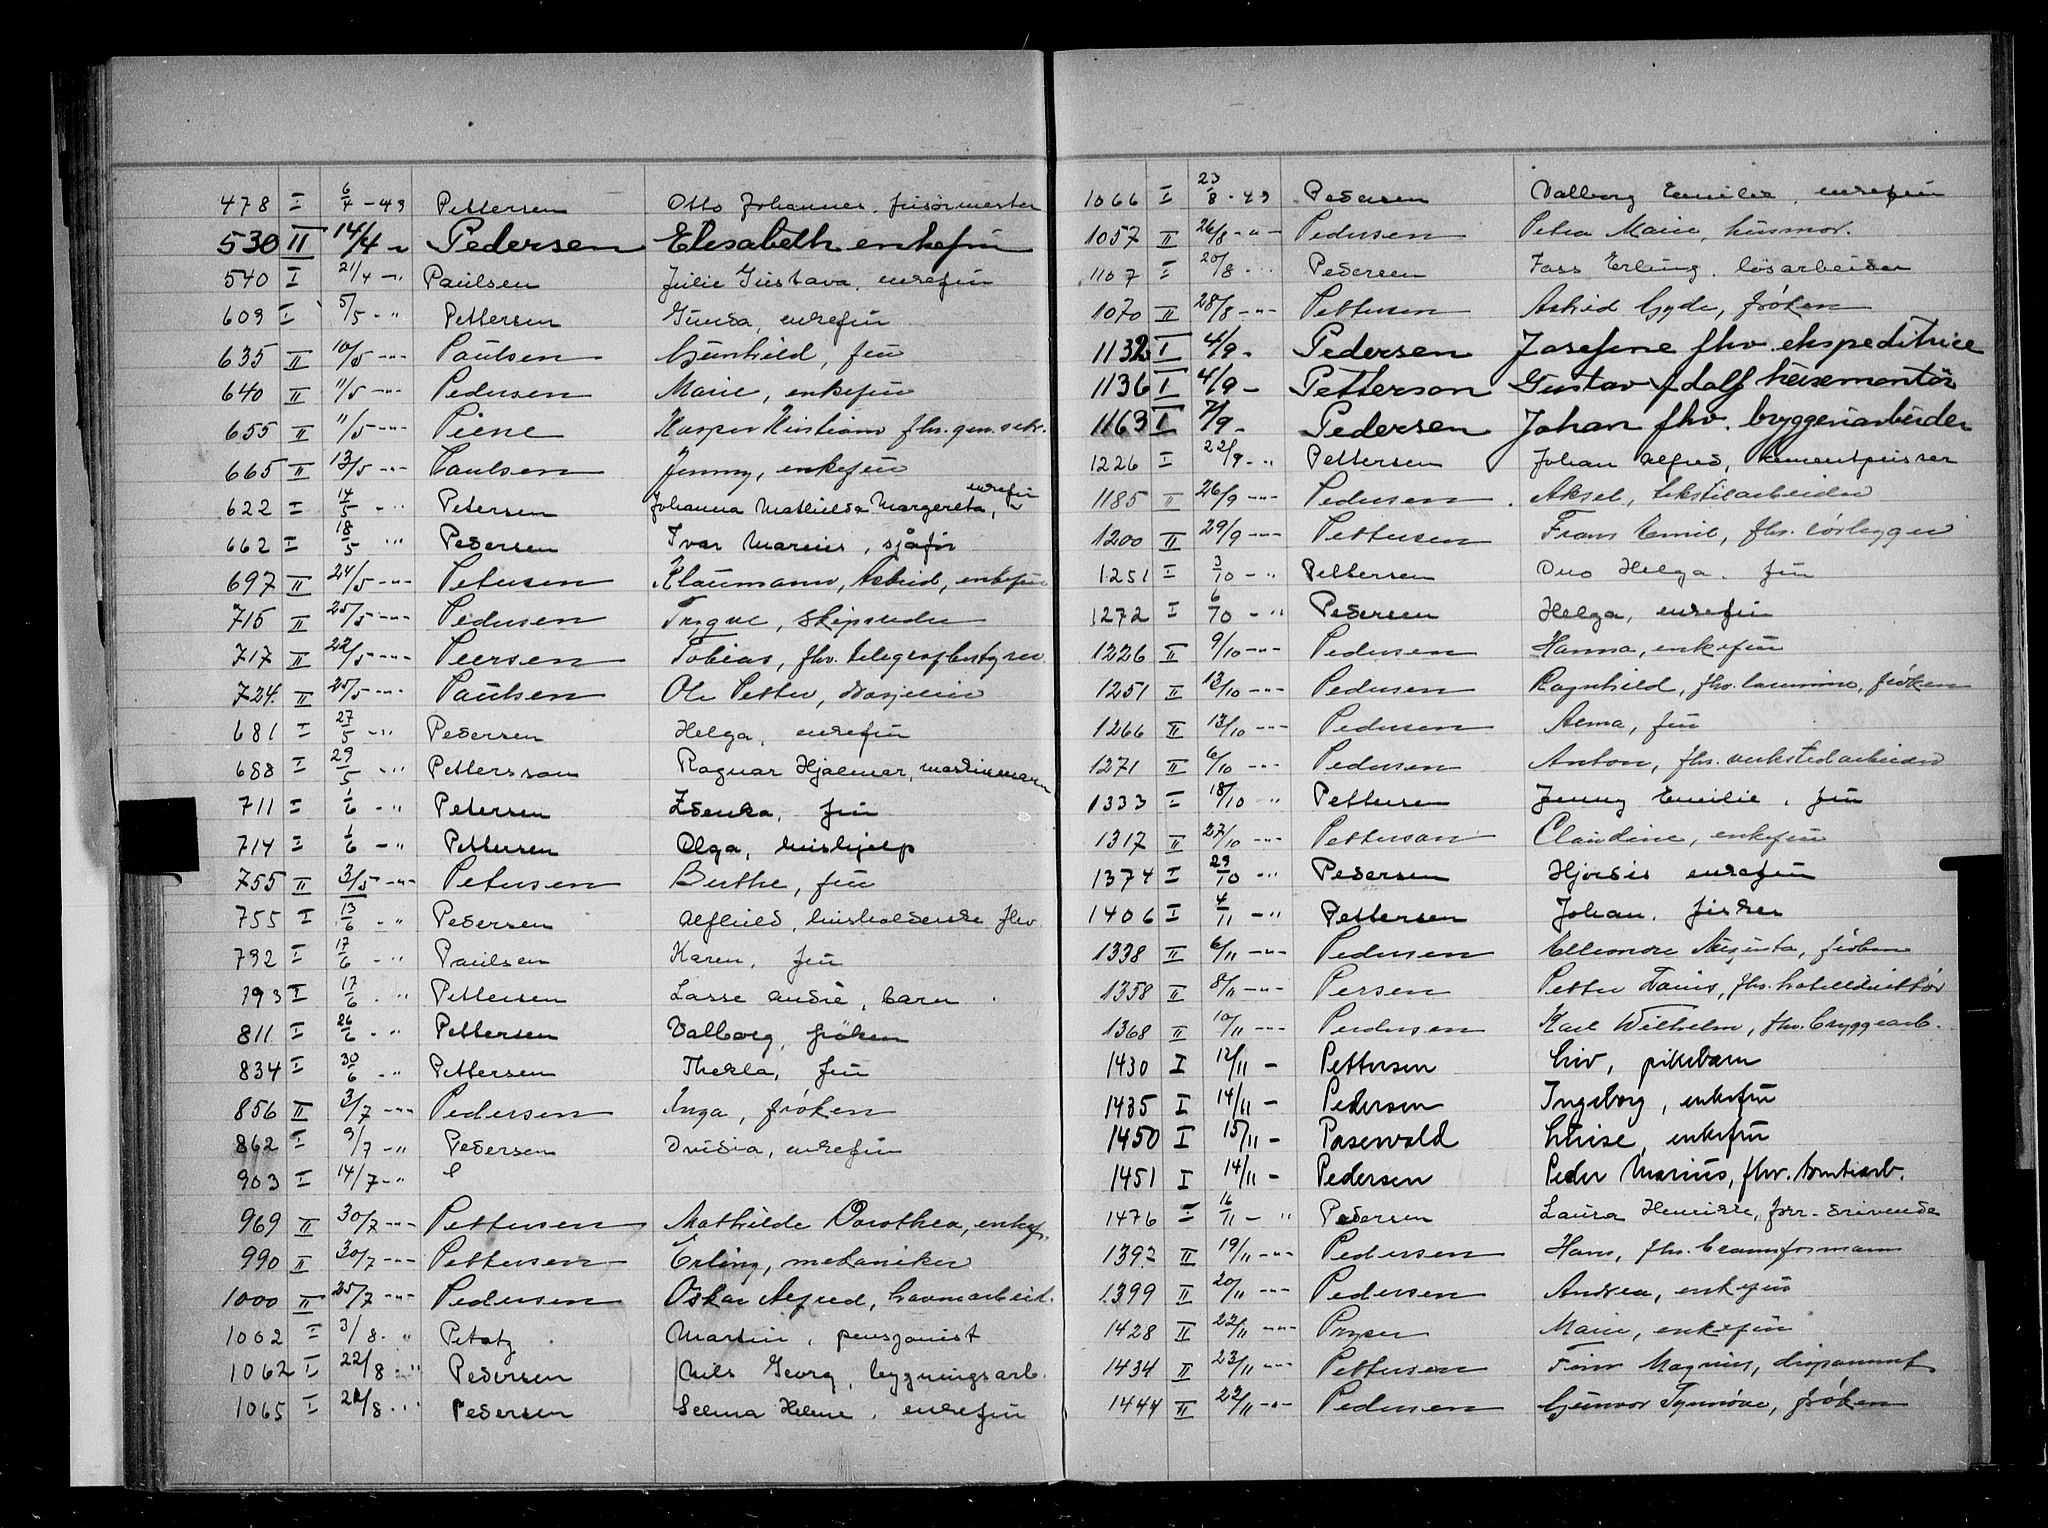 478 I 6/4 - 49 Pettersen Otto Johannes, frisørmester
530 II 14/4 - Pedersen Elisabeth enkefru
540 I 21/4 - " Paulsen Julie Gustava, enkefru
609 I 5/5 - " Pettersen Gunda, enkefru
635 II 10/5 -"- Paulsen Gunhild, fru
640 II 11/5 -"- Pedersen Marie, enkefru
655 II 11/5 -"- Piene Kasper Kristian fhv. gen. sekr.
665 II 13/5 -"- Paulsen Jenny, enkefru
622 I 14/5 - " Petersen Johanna Mathilda Margereta, enkefru
662 I 18/5 " Pedersen Ivar Marius, sjåfør
697 II 24/5 -"- Petersen Klaumann, Astrid, enkefru
715 II 25/5 -"- Pedersen Trygve, skipsreder
717 II 22/5 -"- Peersen Tobias, fhv. telegrafbestyrer
724. II 25/5 -"- Paulsen Ole Petter,
681 I 27/5 -" Pedersen Helga, enkefru
688 I 29/5 " Pettersson Ragnar Hjalmar, maskinmann
711 I 1/6 - " Petersen Zdenka, fru
714 I 1/6 - " Pettersen Olga, hushjelp
755 II 3/5 -"- Petersen Berthe, fru
755 I 13/6 - " Pedersen Alfhild, husholderske fhv.
792 I 17/6 - " Paulsen Karen, fru
793 I 17/6 . " Pettersen Lasse André, barn
811 I 26/6 . " Pettersen Valborg, frøken
834 I 30/6 - " Pettersen Thekla, fru
856 II 3/7 -"- Pedersen Inga, frøken
862 I 9/7 - " Pedersen Ovidia, enkefru
903 I 14/7 - "
969 II 30/7 -"- Pettersen Mathilde Dorothea, enkef.
990 II 30/7 -"- Pettersen Erling, mekaniker
1000 II 25/7 -"- Pedersen Oskar Alfred, havnarbeid.
1002 I 3/8 . " Petatz Martin, pensjonist
1062 I 22/8 " Pedersen Nils Georg, bygningsarb.
1065 I 22/8 . " Pedersen Selma Helene, enkefru
1066 I 23/8 - 49 Pedersen Valborg Emilie, enkefru
1057 II 26/8 -"- Pedersen Petra Marie, husmor.
1107 I 20/8 . " Pedersen Erling, løsarbeider
1070 II 28/8 -"- Pettersen Astrid Gyde, frøken
1132 I 4/9 - Pedersen Josefine fhv. ekspeditrice
1136 I 4/9 - Petterson Gustav Adolf heisemontør
1163 I 7/9 - Pedersen Johan fhv. bryggeriarbeider
1226 I 22/9 - " Pettersen Johan Alfred, sementpusser
1185 II 26/9 -"- Pedersen Aksel, tekstilarbeider
1200 II 29/9 -"- Pettersen Frans Emil, fhv. rørlegger
1251 I 3/10 - " Pettersen Helga. fru
1272 I 6/10 - " Pedersen Helga, enkefru
1226 II 9/10 -"- Pedersen Hanna, enkefru
1251 II 13/10 -"- Pedersen Ragnhild, fhv. lærerinne, frøken
1266 II 13/10 -"- Pedersen Alma, fru
1271 II 6/10 -"- Pedersen Anton, fhv. verkstedarbeider
1333 I 18/10 " Pettersen Jenny Emilie, fru
1317 II 27/10 -"- Petterson Claudine, enkefru
1374 I 29/10 - " Pedersen Hjørdis enkefru
1406 I 4/11 - " Pettersen Johan, fisker
1338 II 6/11 -"- Pedersen Elleonore Augusta, frøken
1358 II 8/11 -"- Persen Petter fhv. hotelldirektør
1368 II 10/11 -"- Pedersen Karl Wilhelm, fhv. bryggearb.
1430 I 12/11 - Pettersen Liv, pikebarn
1435 I 14/11 - Pedersen Ingeborg, enkefru
1450 I 15/11 - Pasewald Luise, enkefru
1451 I 14/11 - Pedersen Peder Marius, fhv. tomtearb.
1476 I 16/11 - " Pedersen Laura Henrikke, forr. drivende
1392 II 19/11 -"- Pedersen Hans, fhv. brannformann
1399 II 20/11 -"- Pedersen Andrea, enkefru
1428 II 22/11 -"- Pryser Marie, enkefru
1434 II 23/11 -"- Pettersen Finn Magnus, disponent
1444 II 22/11 -"- Pedersen Gunvor Synnøve, frøken